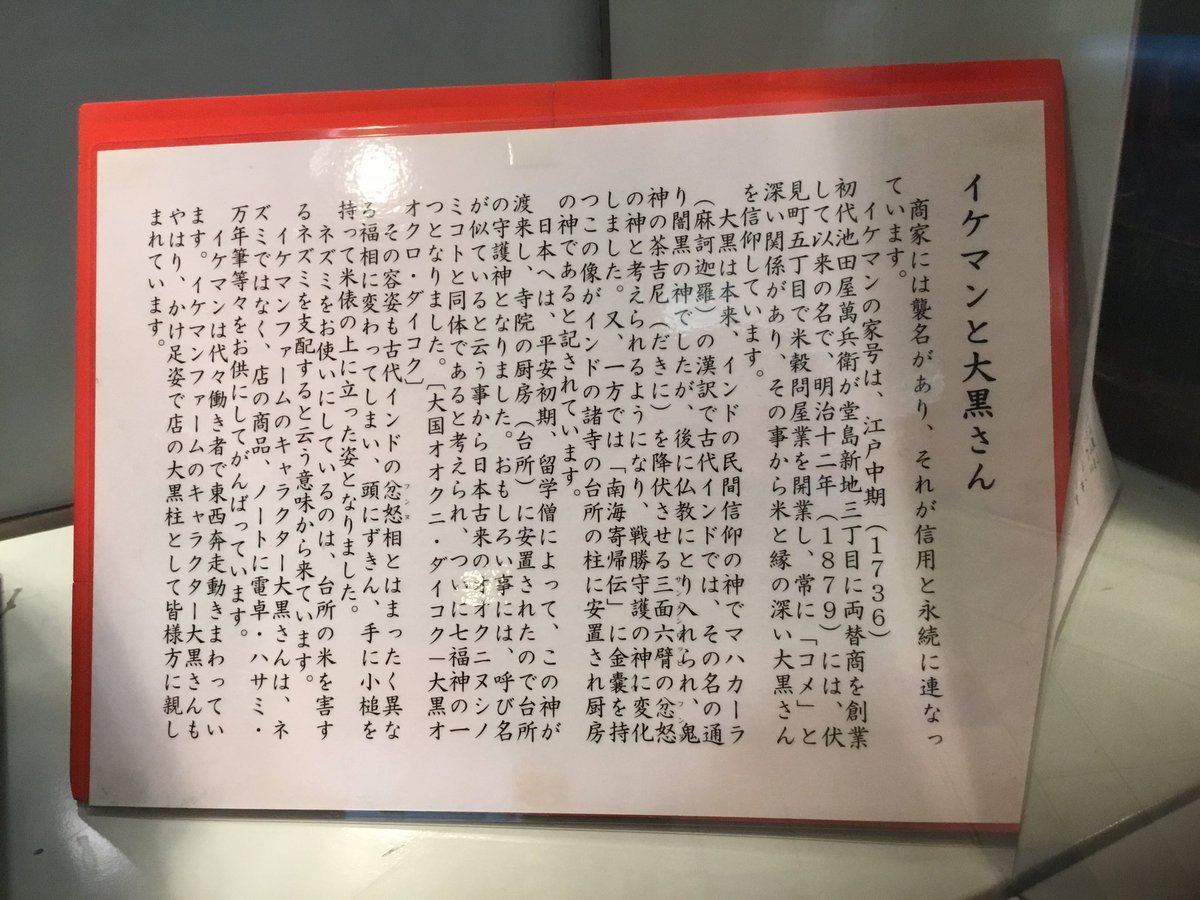 イケマンと大黒さん
商家には襲名があり、それが信用と永続に連なっ
ています。
イケマンの家号は、江戸中期（1736）
初代池田屋萬兵衛が堂島新地三丁目に両替商を創業
して以来の名で、明治十二年（1879）には、伏
見町五丁目で米穀問屋業を開業し、常に「コメ」と
深い関係があり、その事から米と縁の深い大黒さん
を信仰しています。
大黒は本来、インドの民間信仰の神でマハカーラ
（麻訶迦羅）の漢訳で古代インドでは、その名の通
り闇黒の神でしたが、後に仏教にとり入れられ、鬼
神の荼吉尼（だきに）を降伏させる三面六臂の忿怒
の神と考えられるようになり、戦勝守護の神に変化
しました。又、一方では「南海寄帰伝」に金嚢を持
つこの像がインドの諸寺の台所の柱に安置され厨房
の神であると記されています。
日本へは、平安初期、留学僧によって、この神が
渡来し、寺院の厨房（台所）に安置されたので台所
の守護神となりました。おもしろい事には、呼び名
が似ていると云う事から日本古来のオオクニヌシノ
ミコトと同体であると考えられ、ついに七福神の一
つとなりました。〔大国オオクニ・ダイコク―大黒オ
オクロ・ダイコク〕
その容姿も古代インドの忿怒相とはまったく異な
る福相に変わってしまい、頭にずきん、手に小槌を
持って米俵の上に立った姿となりました。
ネズミをお使いにしているのは、台所の米を害す
るネズミを支配すると云う意味から来ています。
イケマンファームのキャラクター大黒さんは、ネ
ズミではなく、店の商品、ノートに電卓・ハサミ・
万年筆等々をお供にしてがんばっています。
イケマンは代々働き者で東西奔走動きまわってい
ます。イケマンファームのキャラクター大黒さんも
やはり、かけ足姿で店の大黒柱として皆様方に親し
まれています。